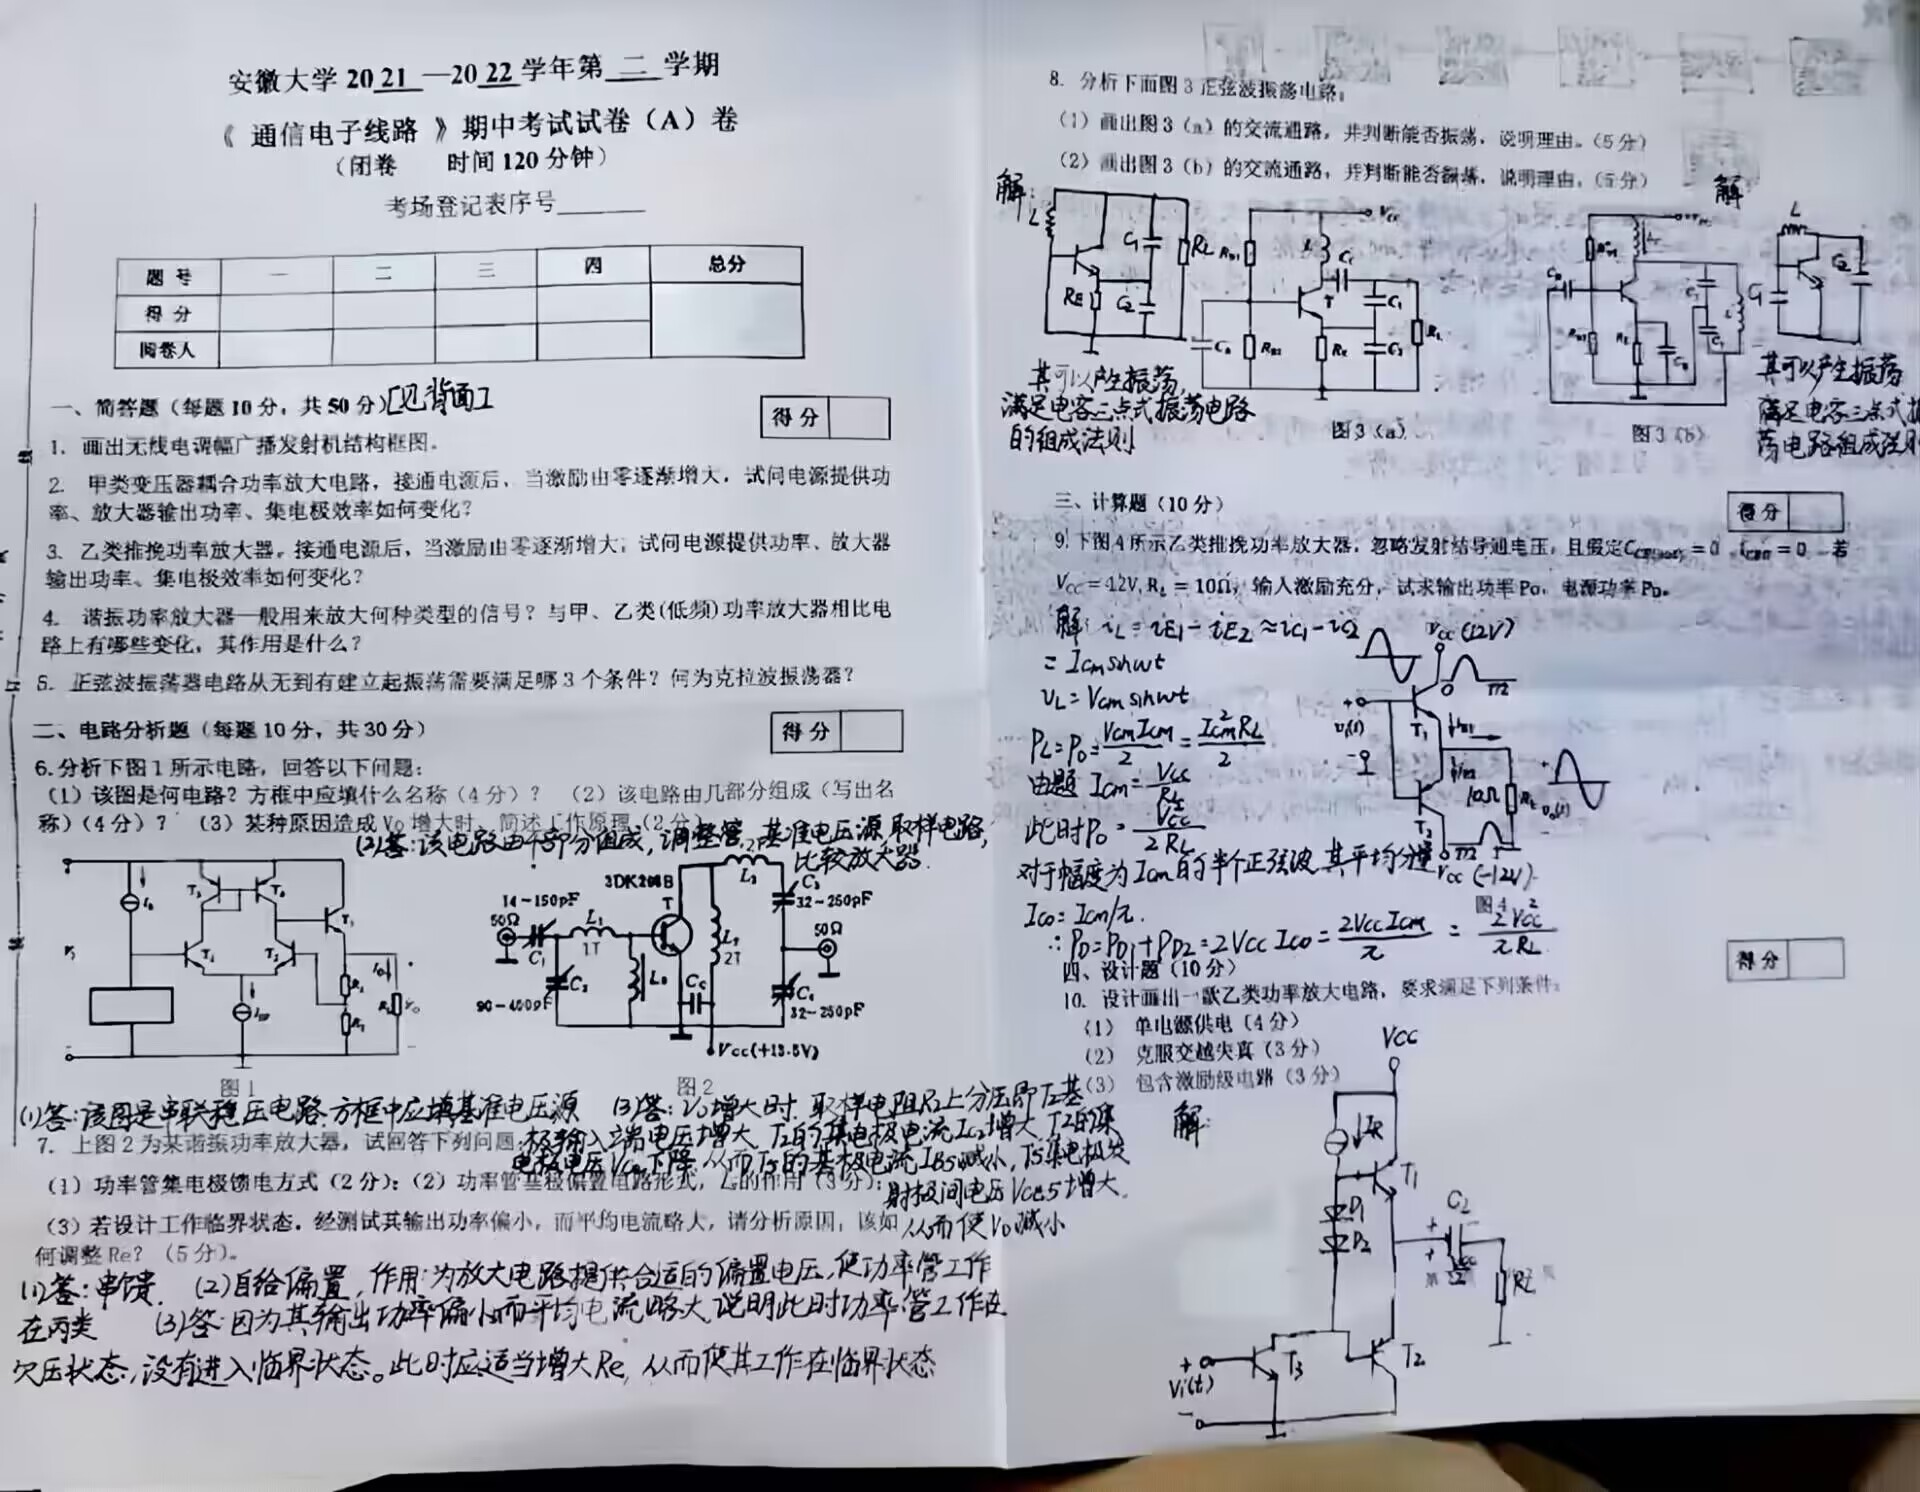 安徽大学 20 21 —20 22 学年第 二 学期
《 通信电子线路 》期中考试试卷（A）卷
（闭卷 时间 120 分钟）
考场登记表序号
题 号 一 二 三 四 总分
得 分
阅卷人
一、简答题（每题 10 分，共 50 分）[见背面]
得 分
1. 画出无线电调幅广播发射机结构框图。
2. 甲类变压器耦合功率放大电路，接通电源后，当激励由零逐渐增大，试问电源提供功
率、放大器输出功率、集电极效率如何变化？
3. 乙类推挽功率放大器，接通电源后，当激励由零逐渐增大，试问电源提供功率、放大器
输出功率、集电极效率如何变化？
4. 谐振功率放大器一般用来放大何种类型的信号？与甲、乙类(低频)功率放大器相比电
路上有哪些变化，其作用是什么？
5. 正弦波振荡器电路从无到有建立起振荡需要满足哪 3 个条件？何为克拉波振荡器？
二、电路分析题（每题 10 分，共 30 分）
得 分
6.分析下图 1 所示电路，回答以下问题：
（1）该图是何电路？方框中应填什么名称（4 分）？ （2）该电路由几部分组成（写出名
称）（4 分）？ （3）某种原因造成 Vo 增大时，简述工作原理（2 分）
(2)答：该电路由4部分组成，调整管，基准电压源，取样电路，
比较放大器.
3DK206B
14~150pF
50Ω
C1
L1
1T
T
L2
2T
L3
C3
32~250pF
50Ω
90~400pF
C2
Cc
C4
32~250pF
Vcc(+13.5V)
图 1
图 2
(1)答：该图是串联稳压电路，方框中应填基准电压源
(3)答：Vo增大时，取样电阻R2上分压即T2基
极输入端电压增大，T2的集电极电流Ic2增大，T2的集
电极电压Vc2下降，从而T5的基极电流IB5减小，T5集电极发
射极间电压VCE5增大，
从而使Vo减小
7. 上图 2 为某谐振功率放大器，试回答下列问题：
（1）功率管集电极馈电方式（2 分）；（2）功率管基极偏置电路形式，
的作用（3 分）；
（3）若设计工作临界状态，经测试其输出功率偏小，而平均电流略大，请分析原因，该如
何调整 Re？（5 分）。
(1)答：串馈. (2)自给偏置，作用：为放大电路提供合适的偏置电压，使功率管工作
在丙类 (3)答：因为其输出功率偏小而平均电流略大，说明此时功率管工作在
欠压状态，没有进入临界状态。此时应适当增大Re，从而使其工作在临界状态
8. 分析下面图 3 正弦波振荡电路：
（1）画出图 3（a）的交流通路，并判断能否振荡，说明理由。（5 分）
（2）画出图 3（b）的交流通路，并判断能否振荡，说明理由。（5 分）
解:
L
C1
RL
RE
C2
其可以产生振荡，
满足电容三点式振荡电路
的组成法则
图 3（a）
图 3（b）
解
L
C1
C2
其可以产生振荡
满足电容三点式振
荡电路组成法则
三、计算题（10 分）
得 分
9.下图 4 所示乙类推挽功率放大器，忽略发射结导通电压，且假定
= 0
= 0 若
VCC = 12V, RL = 10Ω，输入激励充分，试求输出功率 Po，电源功率 PD。
解: iL = iE1 - iE2 ≈ iC1 - iC2
= Icm sinωt
vL = Vcm sinωt
PL = Po = VcmIcm/2 = Icm²RL/2
由题 Icm = Vcc/RL
此时Po = Vcc²/2RL
对于幅度为Icm的半个正弦波，其平均分量
Ico = Icm/π.
∴ PD = PD1 + PD2 = 2Vcc Ico = 2VccIcm/π = 2Vcc²/πRL
Vcc (12V)
T1
10Ω
RL
T2
Vcc (-12V)
图 4
四、设计题（10 分）
得 分
10. 设计画出一款乙类功率放大电路，要求满足下列条件：
（1） 单电源供电（4 分）
（2） 克服交越失真（3 分）
（3） 包含激励级电路（3 分）
解:
VCC
IR
T1
D1
D2
C2
RL
T3
T2
Vi(t)